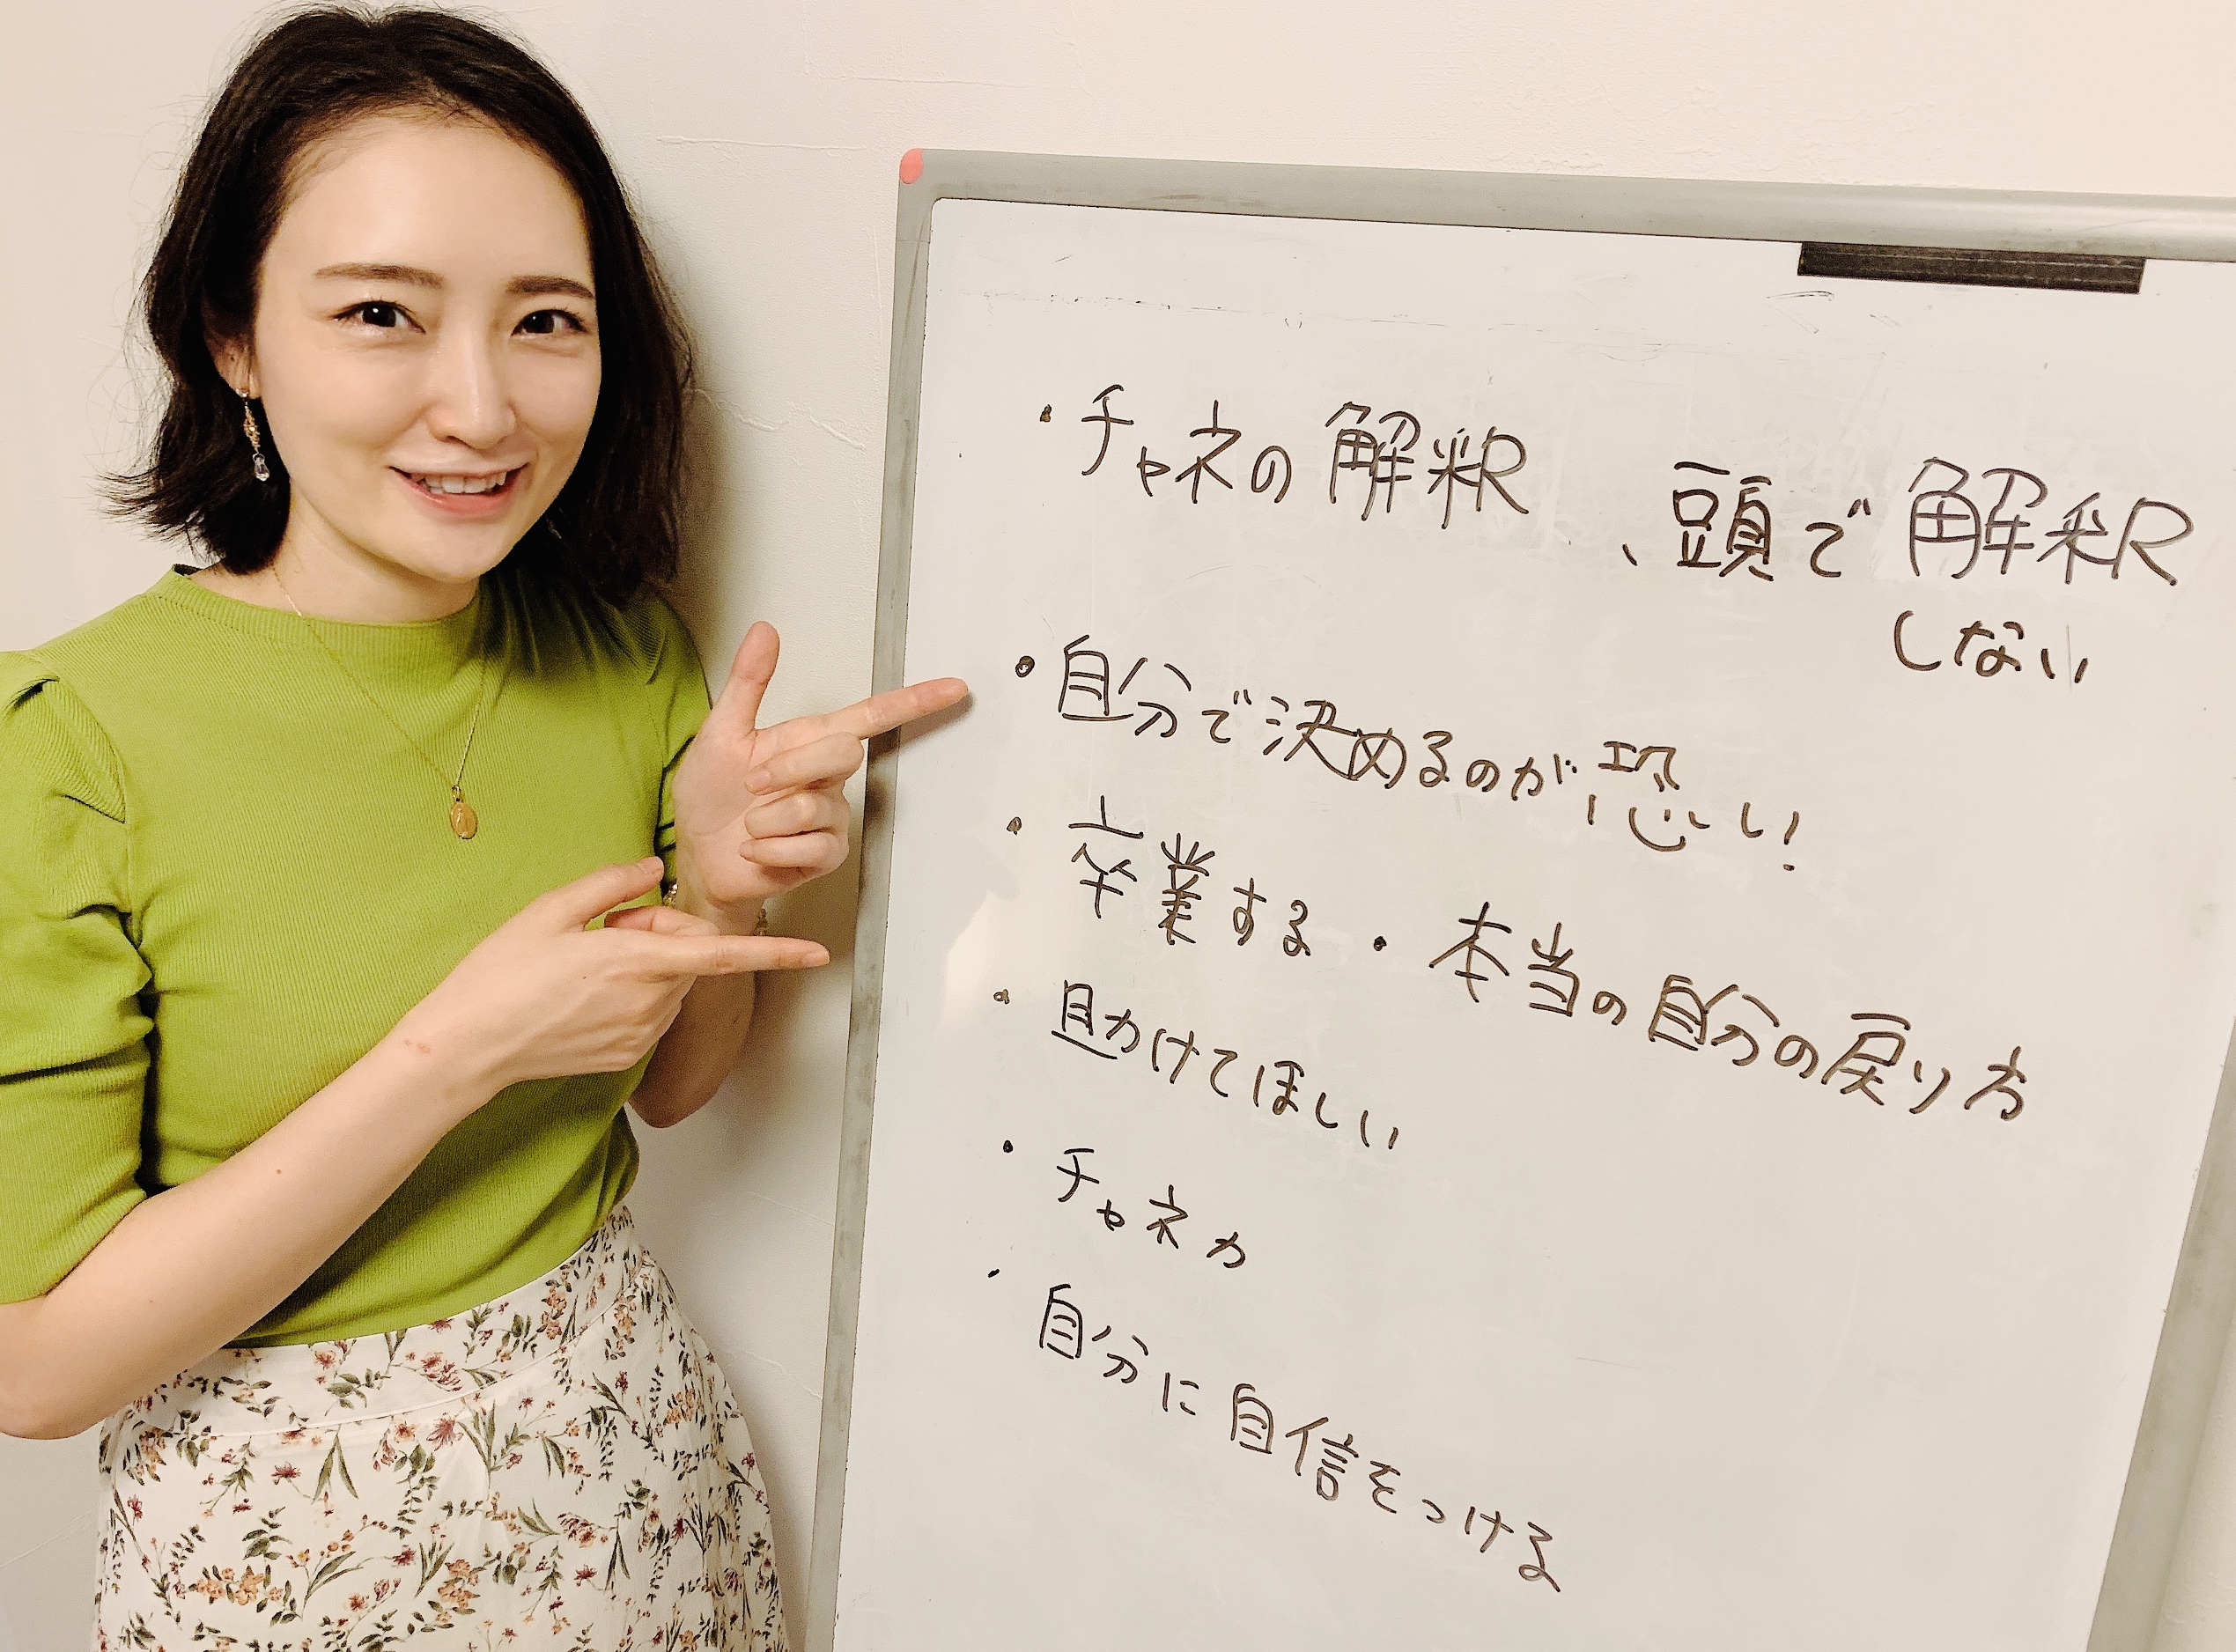 ・チャネの解釈、頭で解釈
しない
・自分で決めるのが恐い!
・卒業する・本当の自分の戻り方
・助けてほしい
・チャネ力
・自分に自信をつける